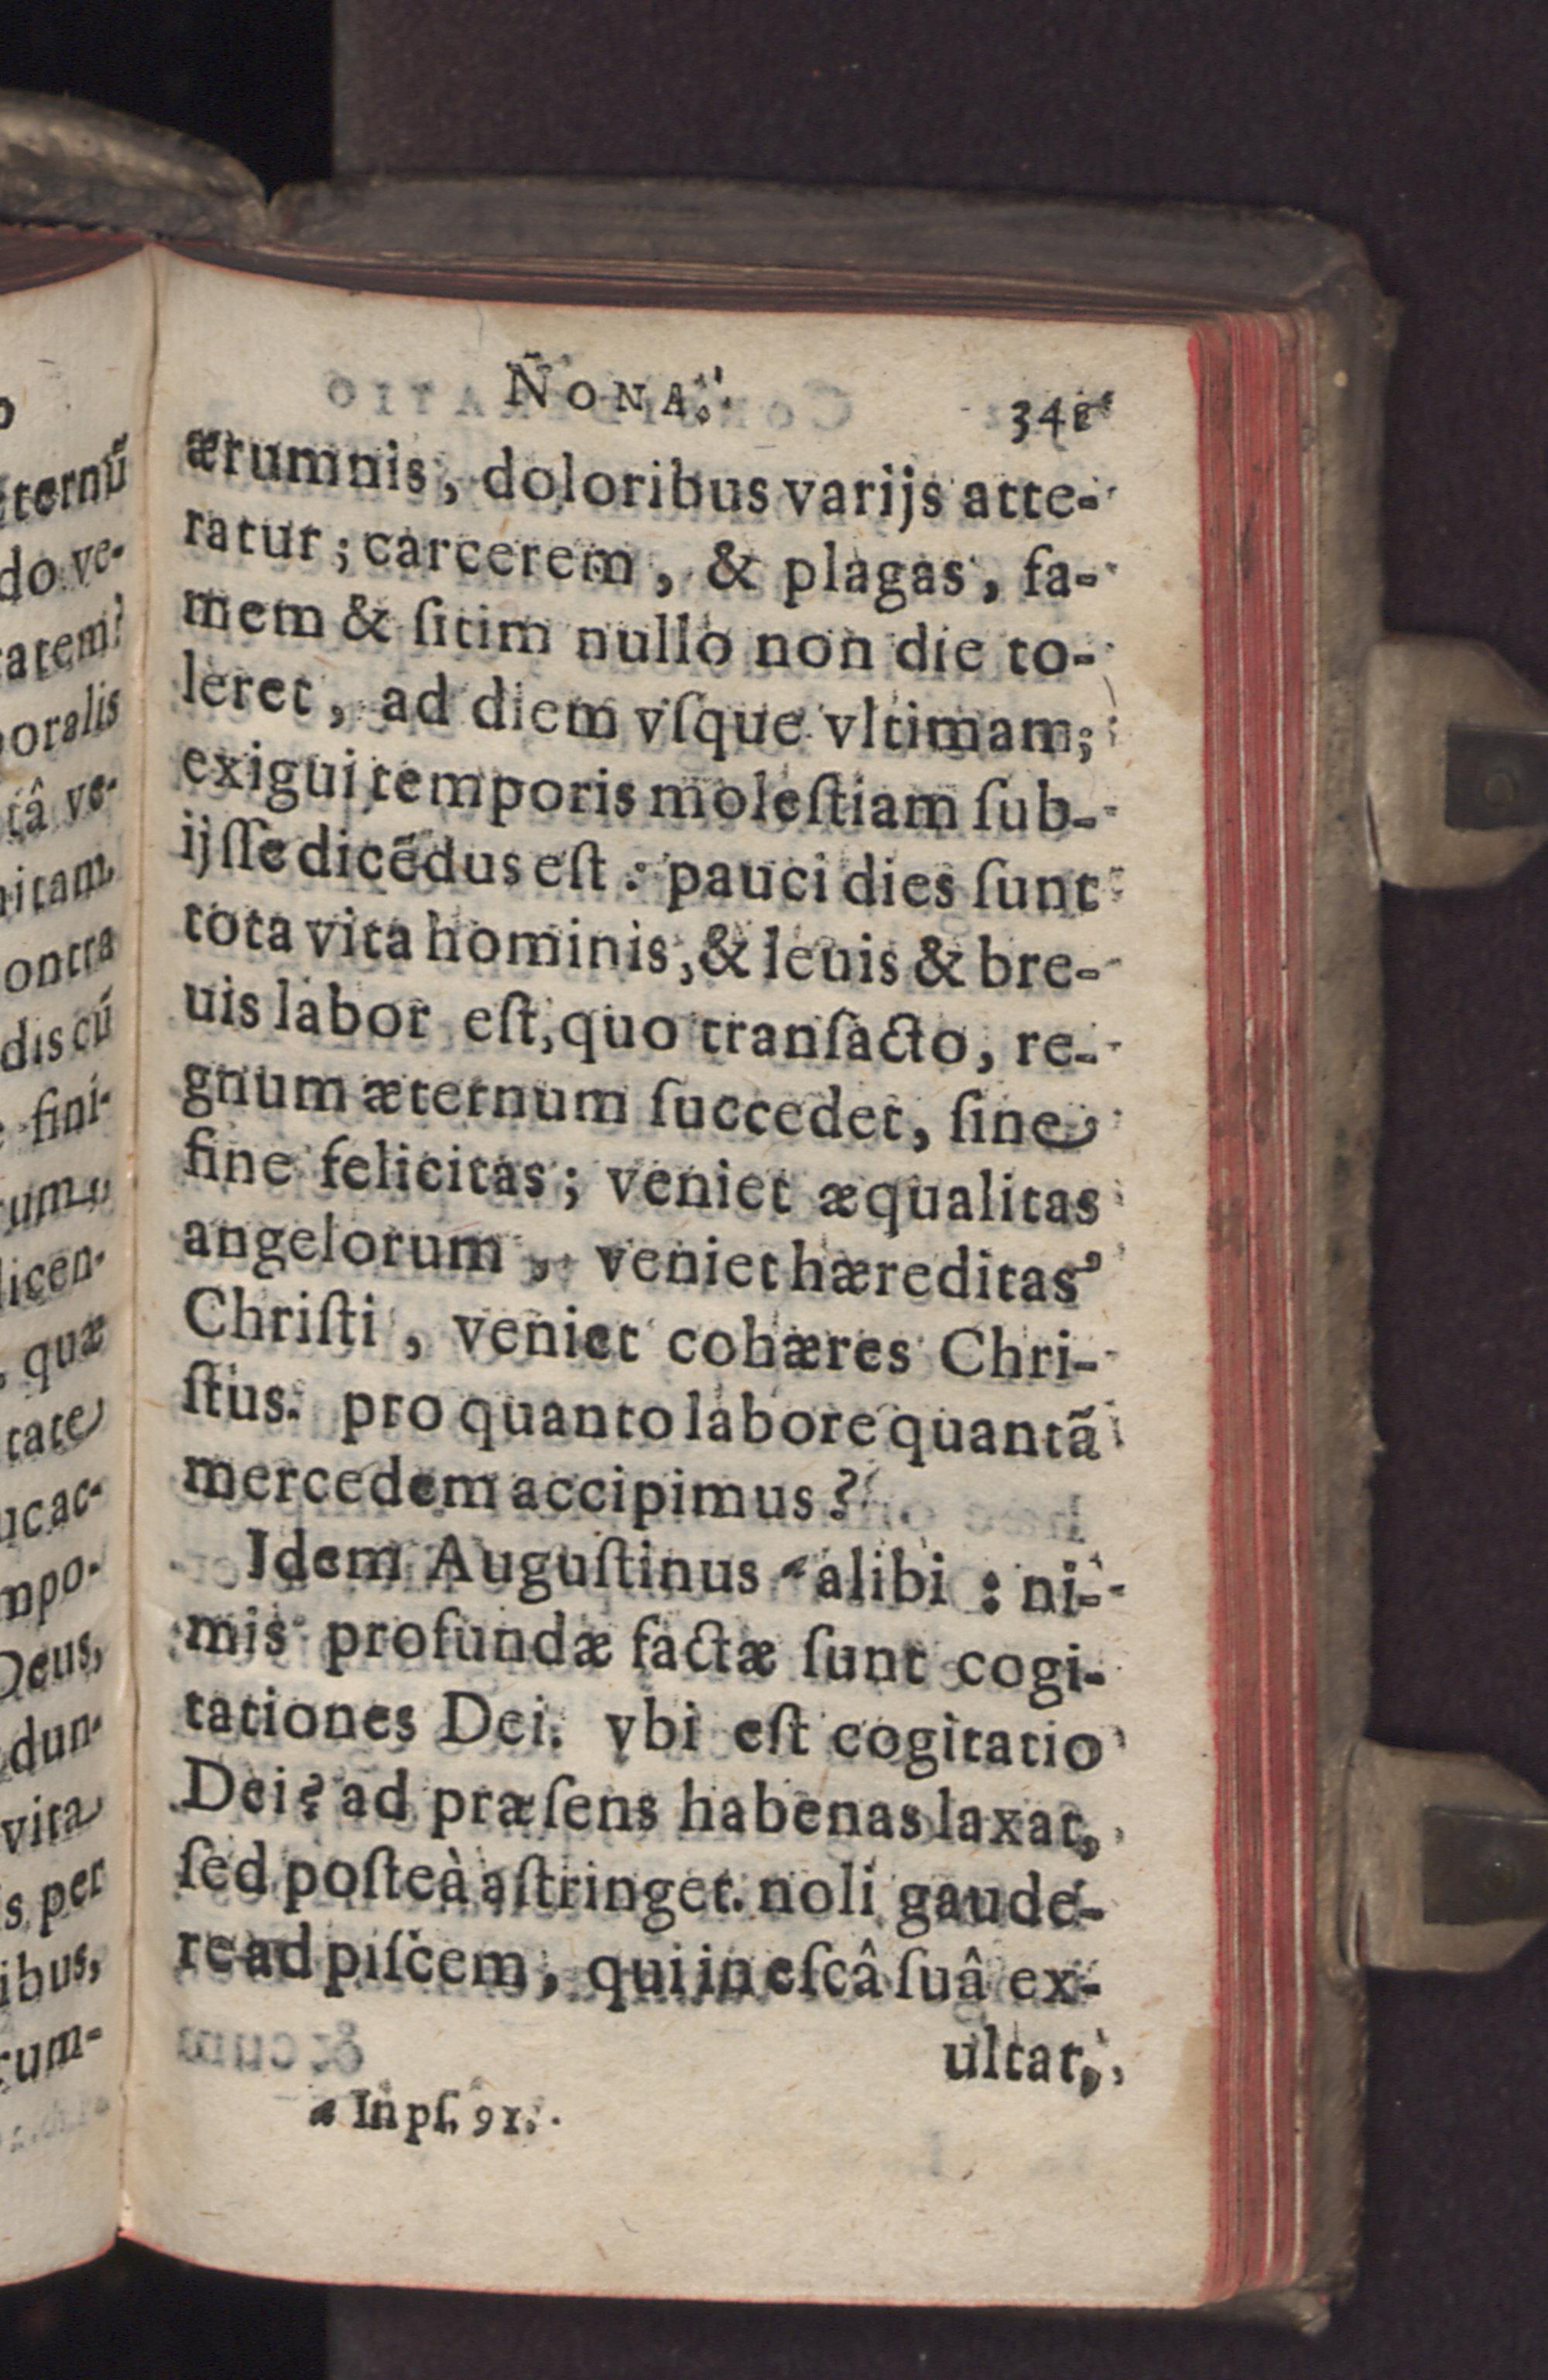 NONA.
ærumnis, doloribus varijs atte-
ratur; carcerem, & plagas, fa-
mem & ſitim nullo non die to-
leret, ad diem vſque vltimam;
exigui temporis moleſtiam ſub-
ijſſe dicẽdus eſt: pauci dies ſunt
tota vita hominis, & leuis & bre-
uis labor eſt, quo tranſacto, re-
gnum æternum ſuccedet, ſine
fine felicitas; veniet æqualitas
angelorum, veniet hæreditas
Chriſti, veniet cohæres Chri-
ſtus. pro quanto labore quantã
mercedem accipimus?
Idem Auguſtinus a alibi: ni-
mis profundæ factæ ſunt cogi-
tationes Dei. vbi eſt cogitatio
Dei? ad præſens habenas laxat,
ſed poſteà aſtringet. noli gaude-
re ad piſcem, qui in eſcâ ſuâ ex-
ultat,
a In pſ. 91.
ternũ
do ve-
atem?
oralis
tâ ve-
itam
ontra
dis cũ
fini-
um,
licen-
quæ
tate
uc ac-
mpo-
Deus,
dun-
vita
s per
ibus,
rum-